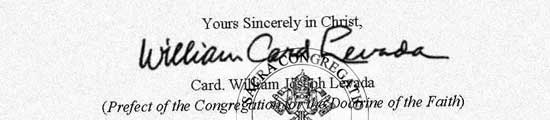 Yours Sincerely in Christ,
William Card Levada
SACRA CONGREGATIO
Card. William Joseph Levada
(Prefect of the Congregation for the Doctrine of the Faith)